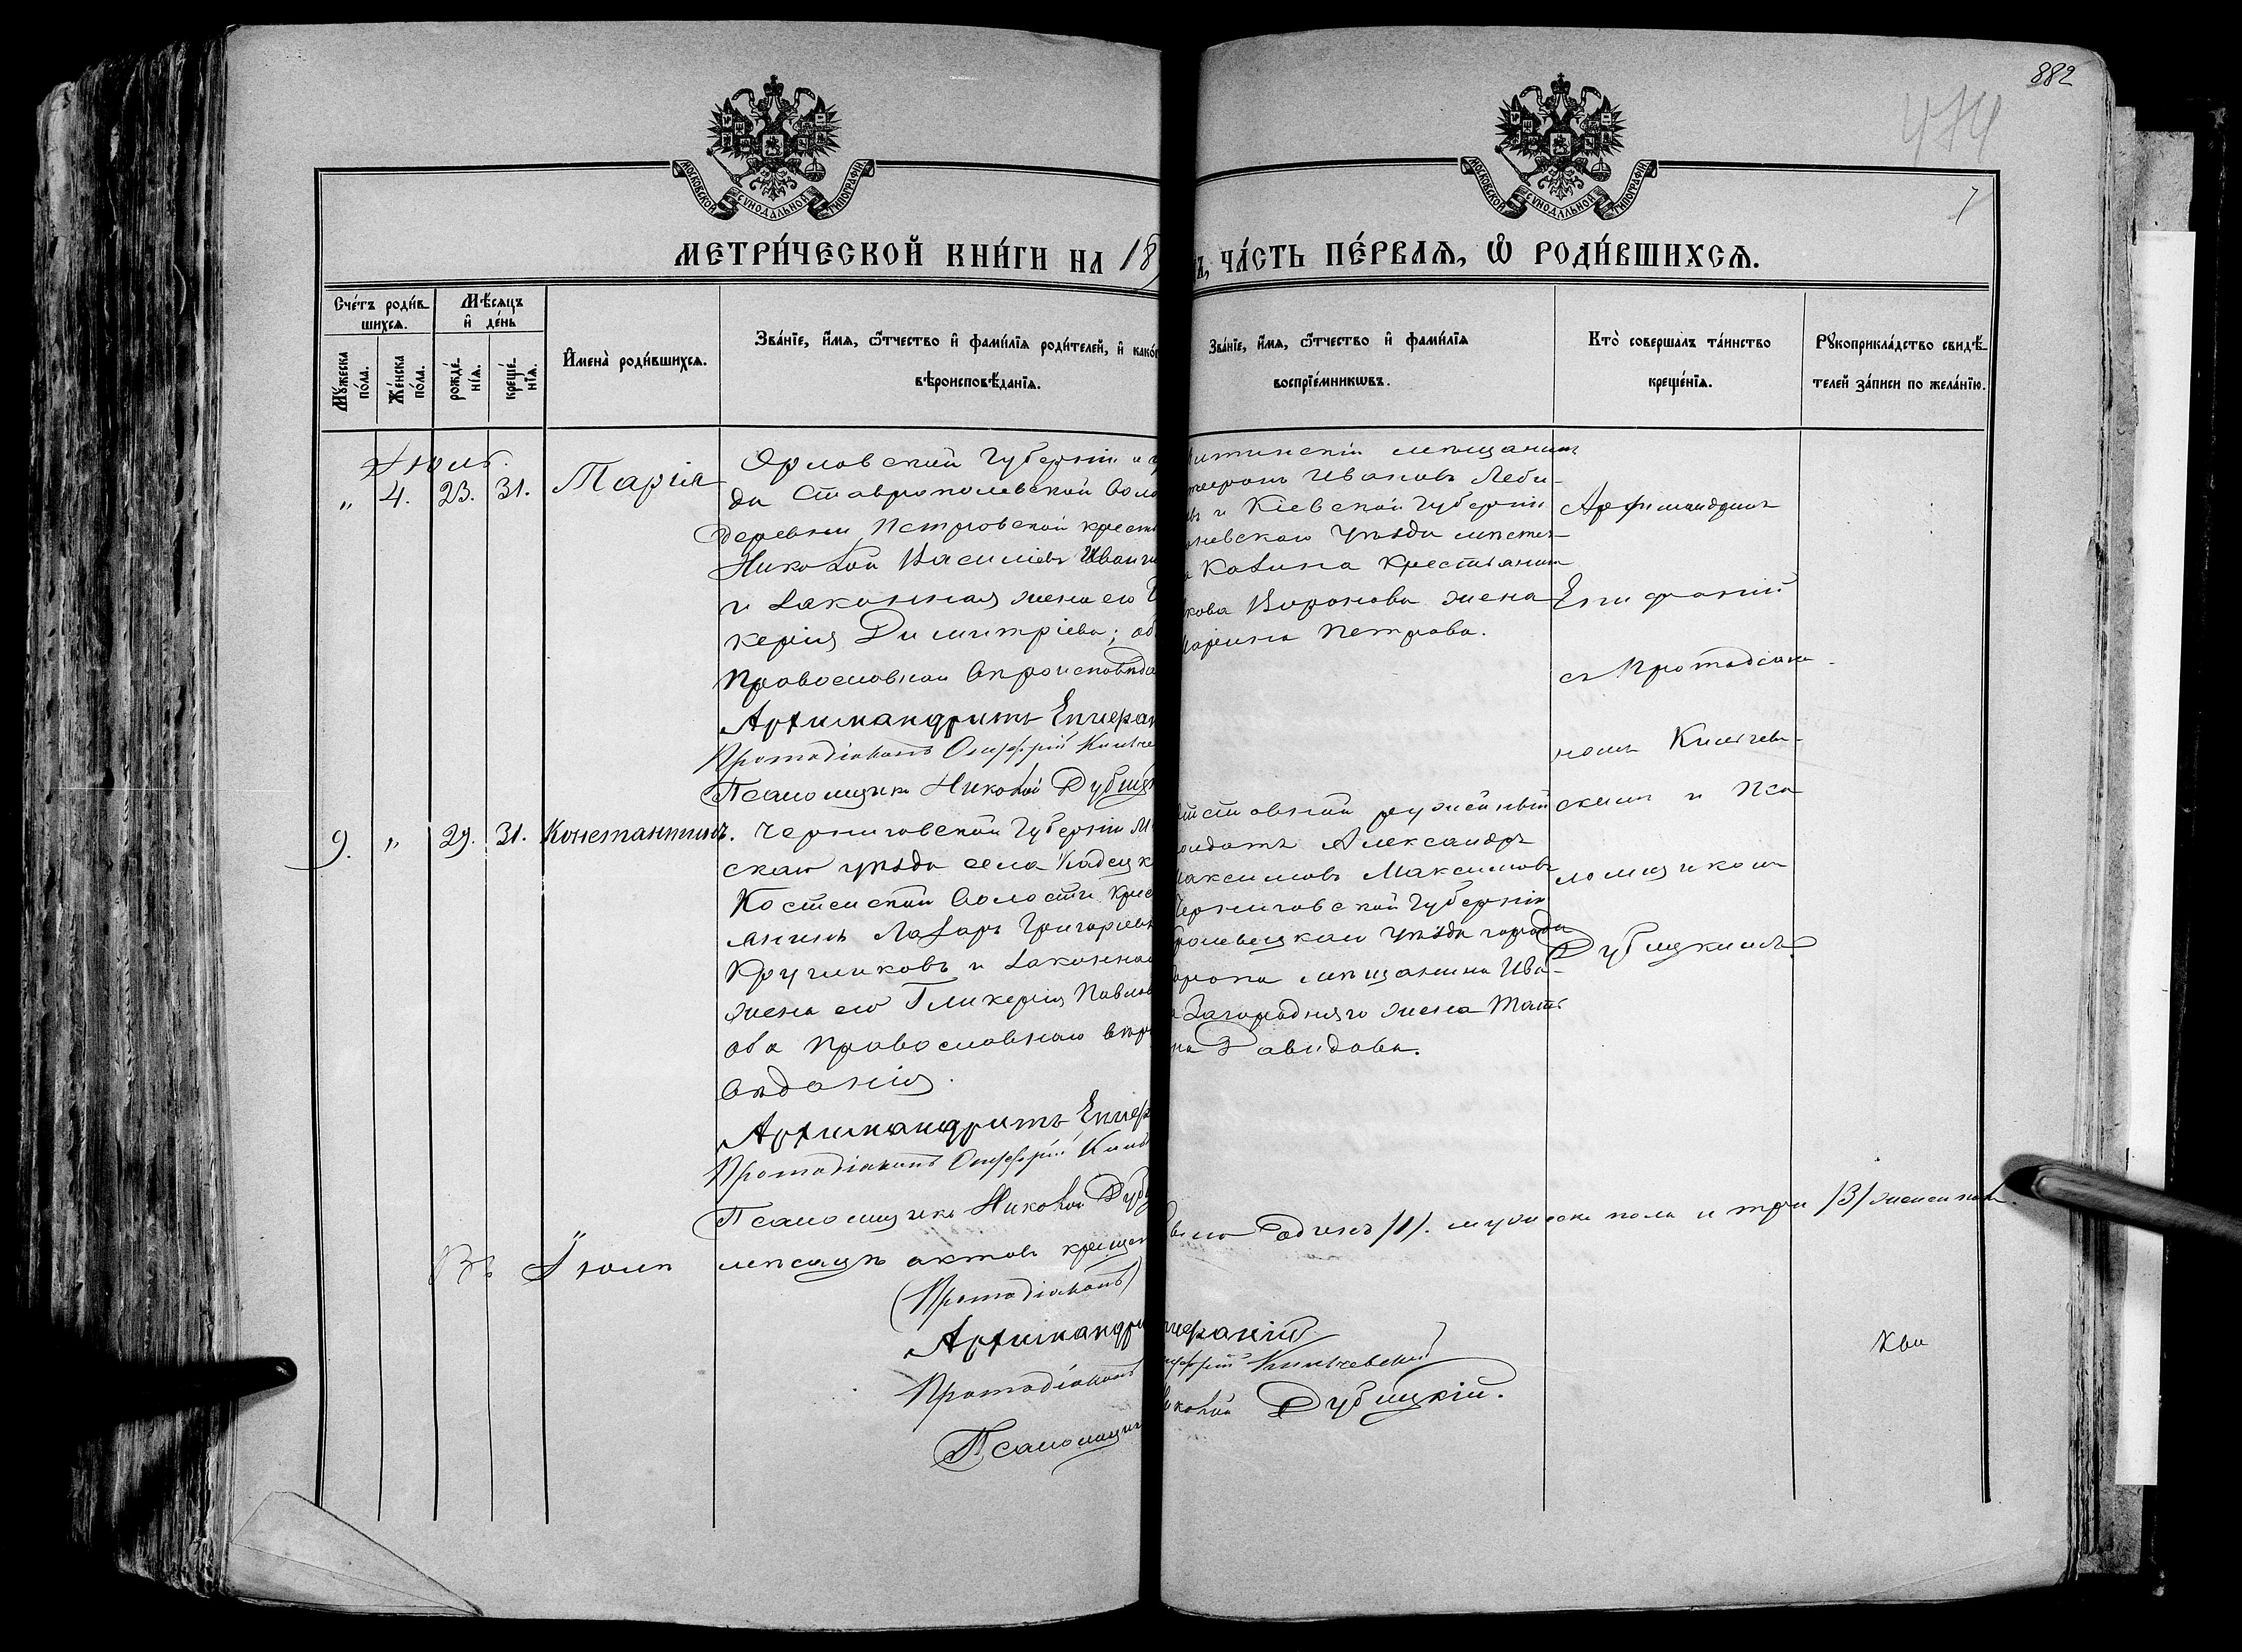 882
474
7
МОСКОВСКОЙ СѴНОДАЛЬНОЙ ТИПОГРАФІИ
МОСКОВСКОЙ СѴНОДАЛЬНОЙ ТИПОГРАФІИ
МЕТРИ́ЧЕСКОЙ КНИ́ГИ НА 18
ЧА́СТЬ ПЕ́РВАѦ, Ѡ҆ РОДИ́ВШИХСѦ.
Сче́тъ роди́в-
шихсѧ.
Мѣ́сѧцъ
и҆ де́нь
Мꙋ́жеска по́ла.
Же́нска по́ла.
рожде́-нїѧ.
креще́-нїѧ.
И҆мена̀ роди́вшихсѧ.
Зва́нїе, и҆́мѧ, ѻ҆́тчество и҆ фами́лїѧ роди́телей, и҆ како́г
вѣроисповѣ́данїѧ.
Зва́нїе, и҆́мѧ, ѻ҆́тчество и҆ фами́лїѧ
воспрїе́мникѡвъ.
Кто̀ соверша́лъ та́инство
креще́нїѧ.
Рꙋкоприкла́дство свидѣ́-
телей за́писи по жела́нїю.
Іюль.
" 4. 23. 31. Марія
Орловской Губерніи и у
да Ставропольской Воло
деревни Петровской крест
Николай Васильевъ Иван
и законная жена его
керія Димитріева; об
Православнаго вѣроисповѣда
Архимандритъ Епифан
Протодіаконъ Онуфрій Кильче
Псаломщикъ Николай Дубиц
мѣщанинъ
Ивановъ Леби-
и Кіевской Губерніи
уѣзда мѣстеч-
Казина крестьянина
кова Воронова жена
Марина Петрова.
Архимандритъ
Епифаній
съ Протодіако-
номъ Кильчев-
скимъ и Пса
ломщикомъ
Дубицкимъ
9. " 29. 31. Константинъ.
Черниговской Губерніи
скаго уѣзда села
волости крес
янинъ Лазарь Григорьевъ
Кругликовъ и законная
жена его Гликерія Павлов
оба Православнаго вѣро
вѣданія.
Архимандритъ Епиф
Протодіаконъ Онуфрій Киль
Псаломщикъ Николай Дуб
солдатъ Александръ
Максимовъ Максимовъ
Черниговской Губерніи
ролевецкаго уѣзда города
оропа мѣщанина Ива-
Загородняго жена Тать
на Давидова.
Въ Іюлѣ мѣсяцѣ актовъ крещен было Одинъ /1/. мужеска пола и три /3/ женска
(Протодіаконъ)
Архимандри пифаній
Протодіаконъ уфрій Кильчевскій
Псаломщик иколай Дубицкій.